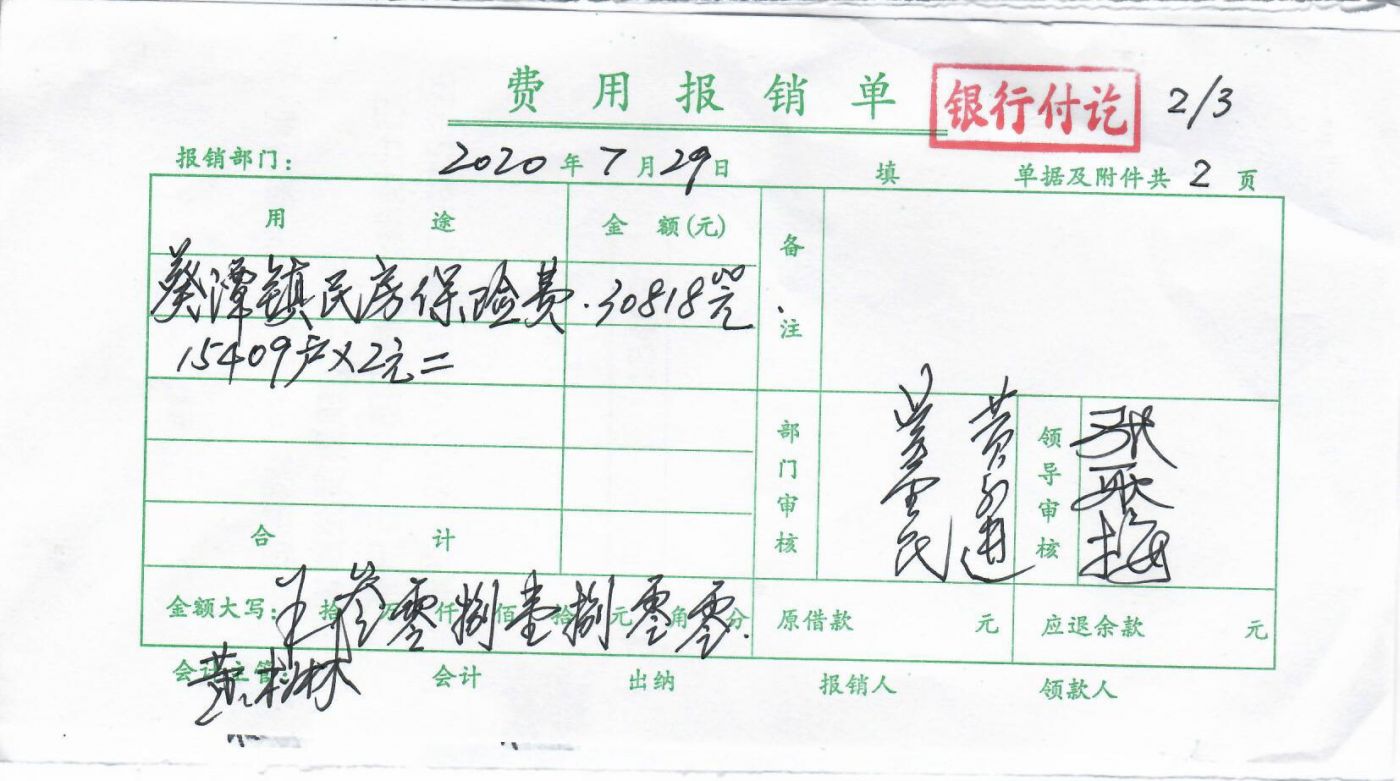 费用报销单 银行付讫 2/3
报销部门： 2020年7月29日 填 单据及附件共 2 页
用途 金额(元) 备注
葵潭镇民房保险费 30818.00元
15409户×2元=
部门审核 领导审核
合计
金额大写： 拾 叁万零仟捌佰壹拾捌元零角零分 原借款 元 应退余款 元
会计主管： 会计 出纳 报销人 领款人